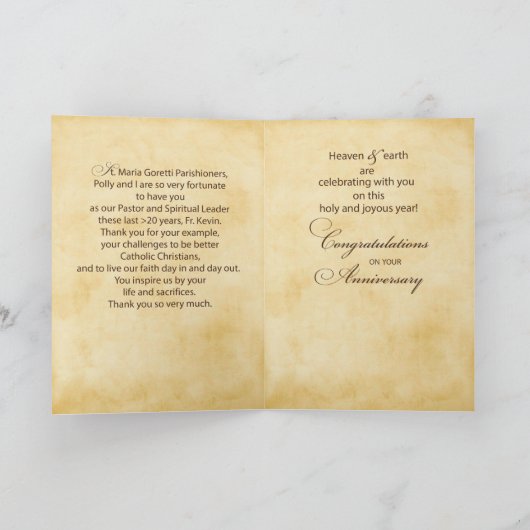 St. Maria Goretti Parishioners,
Polly and I are so very fortunate
to have you
as our Pastor and Spiritual Leader
these last >20 years, Fr. Kevin.
Thank you for your example,
your challenges to be better
Catholic Christians,
and to live our faith day in and day out.
You inspire us by your
life and sacrifices.
Thank you so very much.
Heaven & earth
are
celebrating with you
on this
holy and joyous year!
Congratulations
ON YOUR
Anniversary